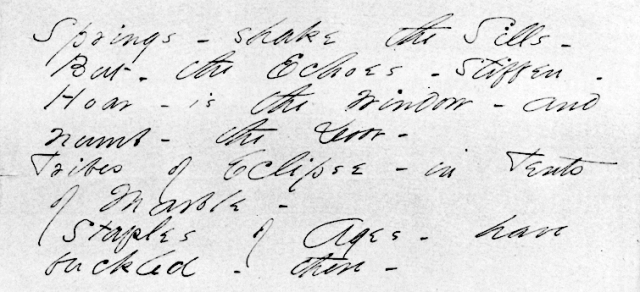 Springs - shake the Sills -
But - the Echoes - stiffen -
Hoar - is the Window - and
numb - the Door -
Tribes of Eclipse - in Tents
of Marble -
Staples of Ages - have
buckled - there -